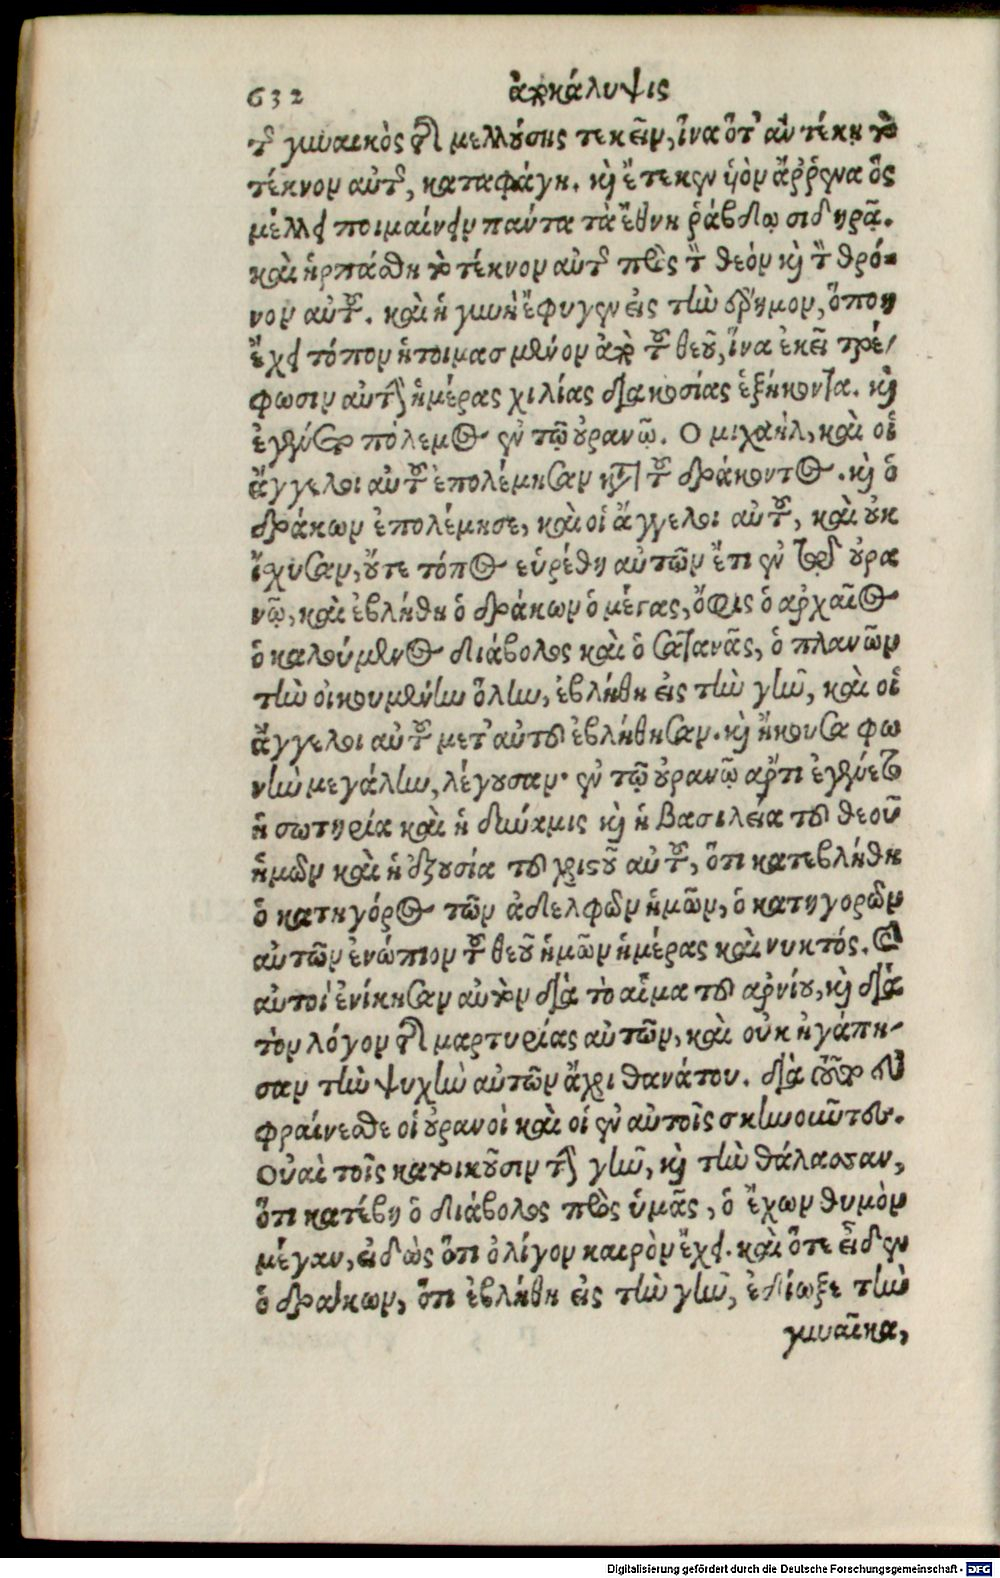 632 ἀποκάλυψις
τῆς γυναικὸς τῆς μελλούσης τεκεῖν, ἵνα ὅτ' ἂν τέκῃ τὸ
τέκνον αὐτῆς, καταφάγῃ. καὶ ἔτεκεν υἱὸν ἄῤῥενα ὃς
μέλλει ποιμαίνειν πάντα τὰ ἔθνη ῥάβδῳ σιδηρᾷ.
καὶ ἡρπάσθη τὸ τέκνον αὐτῆς πρὸς τὸν θεὸν καὶ τὸν θρό-
νον αὐτοῦ. καὶ ἡ γυνὴ ἔφυγεν εἰς τὴν ἔρημον, ὅπου
ἔχει τόπον ἡτοιμασμένον ἀπὸ τοῦ θεοῦ, ἵνα ἐκεῖ τρέ-
φωσιν αὐτὴν ἡμέρας χιλίας διακοσίας ἑξήκοντα. καὶ
ἐγένετο πόλεμος ἐν τῷ οὐρανῷ. Ο μιχαὴλ, καὶ οἱ
ἄγγελοι αὐτοῦ ἐπολέμησαν κατὰ τοῦ δράκοντος. καὶ ὁ
δράκων ἐπολέμησε, καὶ οἱ ἄγγελοι αὐτοῦ, καὶ οὐκ
ἴχυσαν, οὔτε τόπος εὑρέθη αὐτῶν ἔτι ἐν τῷ οὐρα
νῷ, καὶ ἐβλήθη ὁ δράκων ὁ μέγας, ὄφις ὁ ἀρχαῖος
ὁ καλούμενος διάβολος καὶ ὁ σατανᾶς, ὁ πλανῶν
τὴν οἰκουμένην ὅλην, ἐβλήθη εἰς τὴν γῆν, καὶ οἱ
ἄγγελοι αὐτοῦ μετ' αὐτοῦ ἐβλήθησαν. καὶ ἤκουσα φω
νὴν μεγάλην, λέγουσαν· ἐν τῷ οὐρανῷ ἄρτι ἐγένετο
ἡ σωτηρία καὶ ἡ δύναμις καὶ ἡ βασιλεία τοῦ θεοῦ
ἡμῶν καὶ ἡ ἐξουσία τοῦ χριστοῦ αὐτοῦ, ὅτι κατεβλήθη
ὁ κατηγόρος τῶν ἀδελφῶν ἡμῶν, ὁ κατηγορῶν
αὐτῶν ἐνώπιον τοῦ θεοῦ ἡμῶν ἡμέρας καὶ νυκτός. καὶ
αὐτοὶ ἐνίκησαν αὐτὸν διὰ τὸ αἷμα τοῦ ἀρνίου, καὶ διὰ
τὸν λόγον τῆς μαρτυρίας αὐτῶν, καὶ οὐκ ἠγάπη-
σαν τὴν ψυχὴν αὐτῶν ἄχρι θανάτου. διὰ τοῦτο εὐ
φραίνεσθε οἱ οὐρανοὶ καὶ οἱ ἐν αὐτοῖς σκηνοῦντες.
Οὐαὶ τοῖς κατοικοῦσιν τὴν γῆν, καὶ τὴν θάλασσαν,
ὅτι κατέβη ὁ διάβολος πρὸς ὑμᾶς, ὁ ἔχων θυμὸν
μέγαν, εἰδὼς ὅτι ὀλίγον καιρὸν ἔχει. καὶ ὅτε εἶδεν
ὁ δράκων, ὅτι ἐβλήθη εἰς τὴν γῆν, ἐδίωξε τὴν
γυναῖκα,
Digitalisierung gefördert durch die Deutsche Forschungsgemeinschaft - DFG